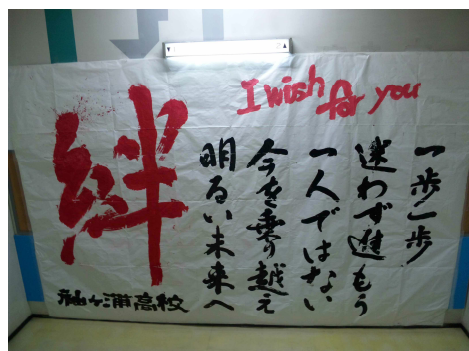 I wish for you
一歩一歩
迷わず進もう
一人ではない
今を乗り越え
明るい未来へ
絆
袖ヶ浦高校